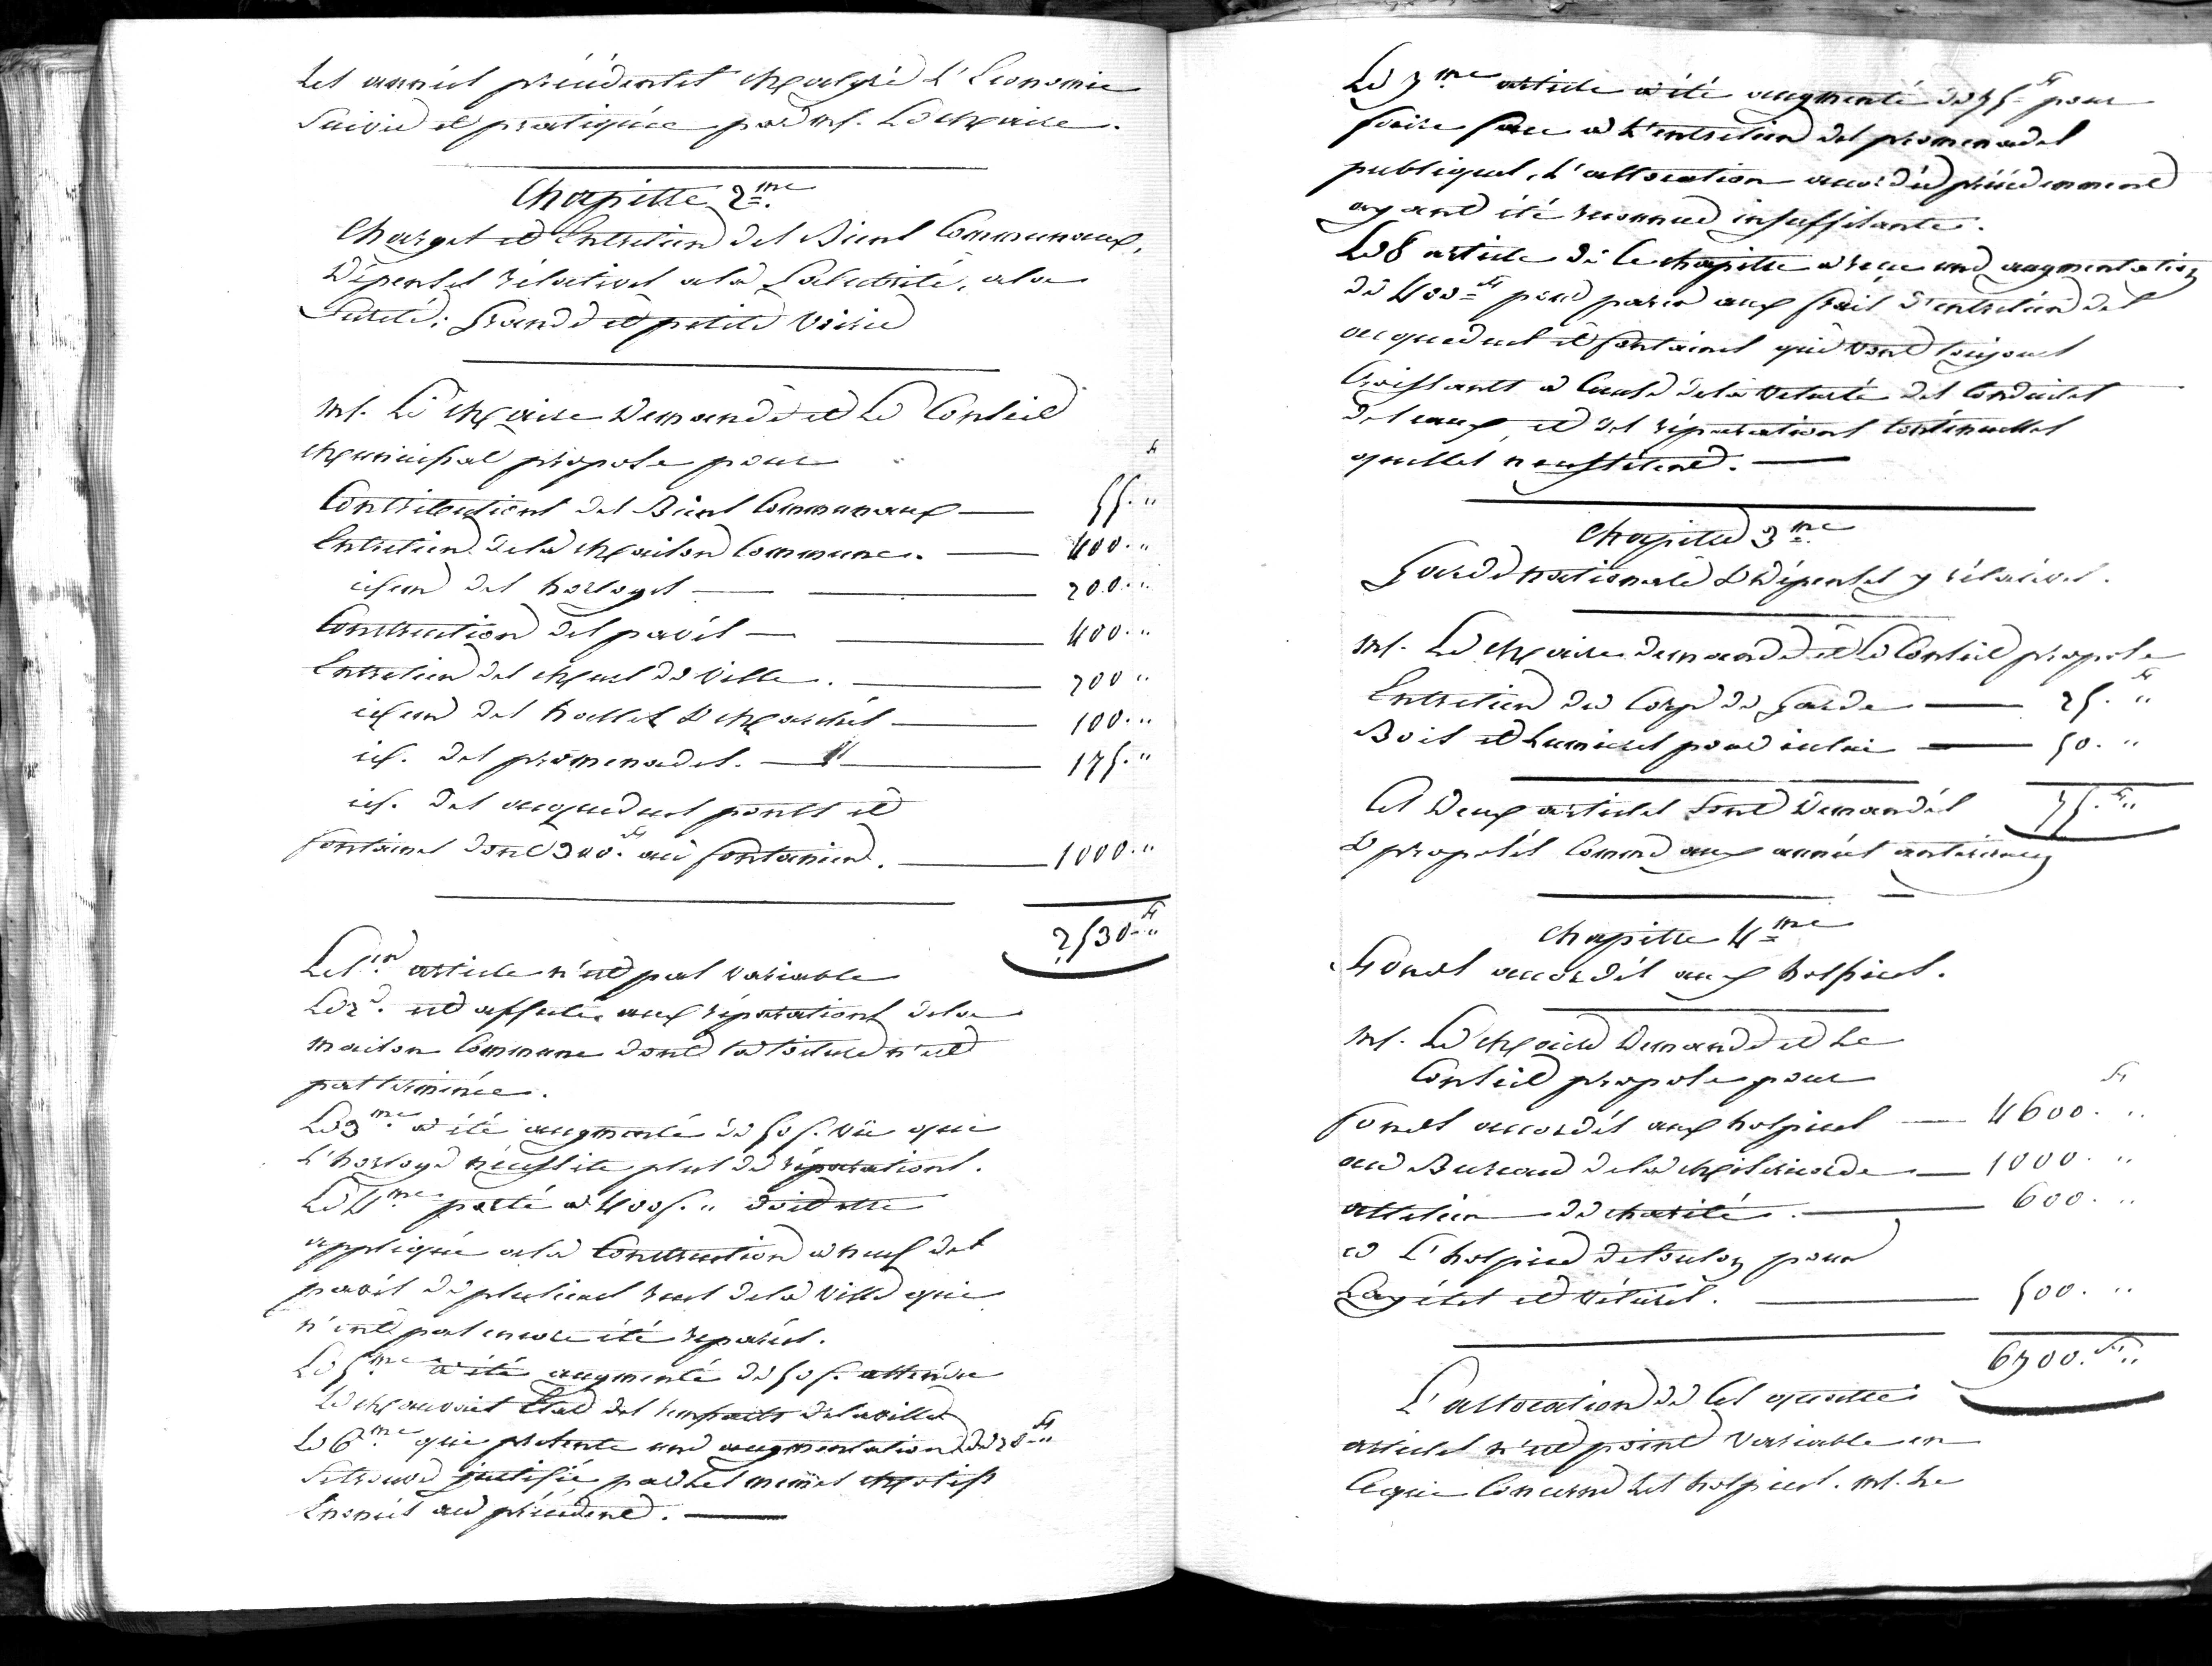 les années précédentes Malgré L'Economie
Suivie et pratiquée par mr. Le Maire.
Chapitre 2.me
Charges et Entretien des Biens Communaux,
Dépenses rélatives a la Salubrité, a la
Sureté; Grande et petite Voirie
mr. Le Maire Demande et Le Conseil
Municipal propose pour fr
Contributions des Biens Communaux — 55. "
Entretien de la Maison Commune. — 400. "
idem des horloges — 200. "
Construction des pavés — 400. "
Entretien des Murs de Ville. — 200 "
idem des halles & Marchés — 100. "
id. des promenades. — 175. "
id. des acqueducs ponts et
fontaines dont 300.fr au fontanier. — 1000. "
2530.fr "
Le 1.er article n'est pas variable
Le 2.d est affecté aux réparations de la
maison Commune dont la toiture n'est
pas terminée.
Le 3.me a été augmenté de 50 f. vû que
L'horloge nécessite plus de réparations.
Le 4.me porté a 400 f. " doit etre
appliqué a la Construction a neuf des
pavés de plusieurs rues de la Ville qui
n'ont pas encore été reparées.
Le 5.me a été augmenté de 50 f. attendu
Le Mauvais Etat des remparts de la ville
Le 6.me qui présente une augmentation de 20 fr "
Se trouve justifié par les memes Motifs
Enoncés au précédent.
Le 7.me article a été augmenté de 75 fr pour
faire face a L'entretien des promenades
publiques, L'allocation accordée précédemment
ayant été reconnue insuffisante.
Le 8 article de Ce chapitre a reçu une augmentation
de 400 fr pour parer aux frais d'entretien des
acqueducs et fontaines qui vont toujours
Croissants a Cause de la Vetusté des Conduites
des eaux, et des réparations Continuelles
quelles necessitent.
Chapitre 3.me
Garde nationale & Dépenses y rélatives.
mr. Le Maire demande et Le Conseil propose
Entretien du Corps de Garde — 25. fr "
Bois et Lumieres pour icelui — 50. "
Ces Deux articles Sont Demandés 75. fr "
& proposés Comme aux années anterieures
Chapitre 4.me
Fonds accordés aux hospices.
mr. Le Maire Demande et Le
Conseil propose pour fr
fonds accordés aux hospices — 4600. "
au Bureau de la Misericorde — 1000. "
attelier de charité. — 600. "
a L'hospice de Toulon pour
Layétes et vétures. — 500. "
6700. fr "
L'allocation de Ces quatre
articles n'est point Variable en
Ce qui Concerne Les hospices. mr. Le